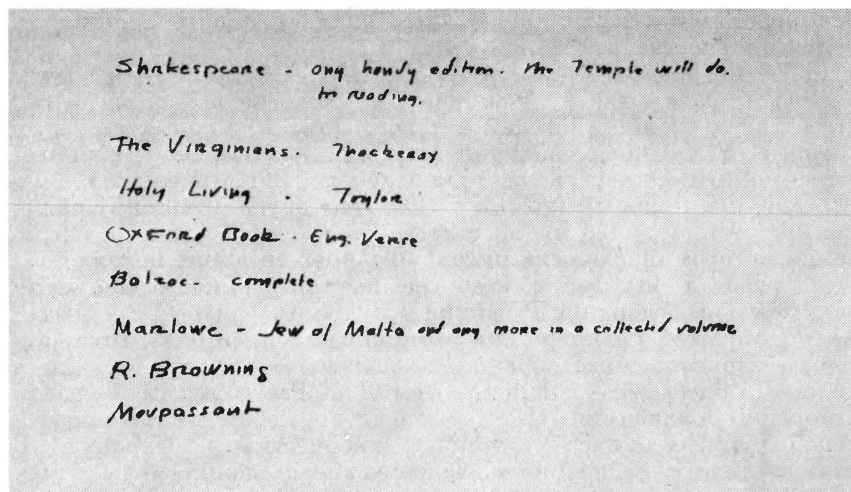 Shakespeare - any handy edition. The Temple will do.
to reading.
The Virginians. Thackeray
Holy Living - Taylor
Oxford Book - Eng. Verse
Balzac - complete
Marlowe - Jew of Malta and any more in a collected volume
R. Browning
Maupassant